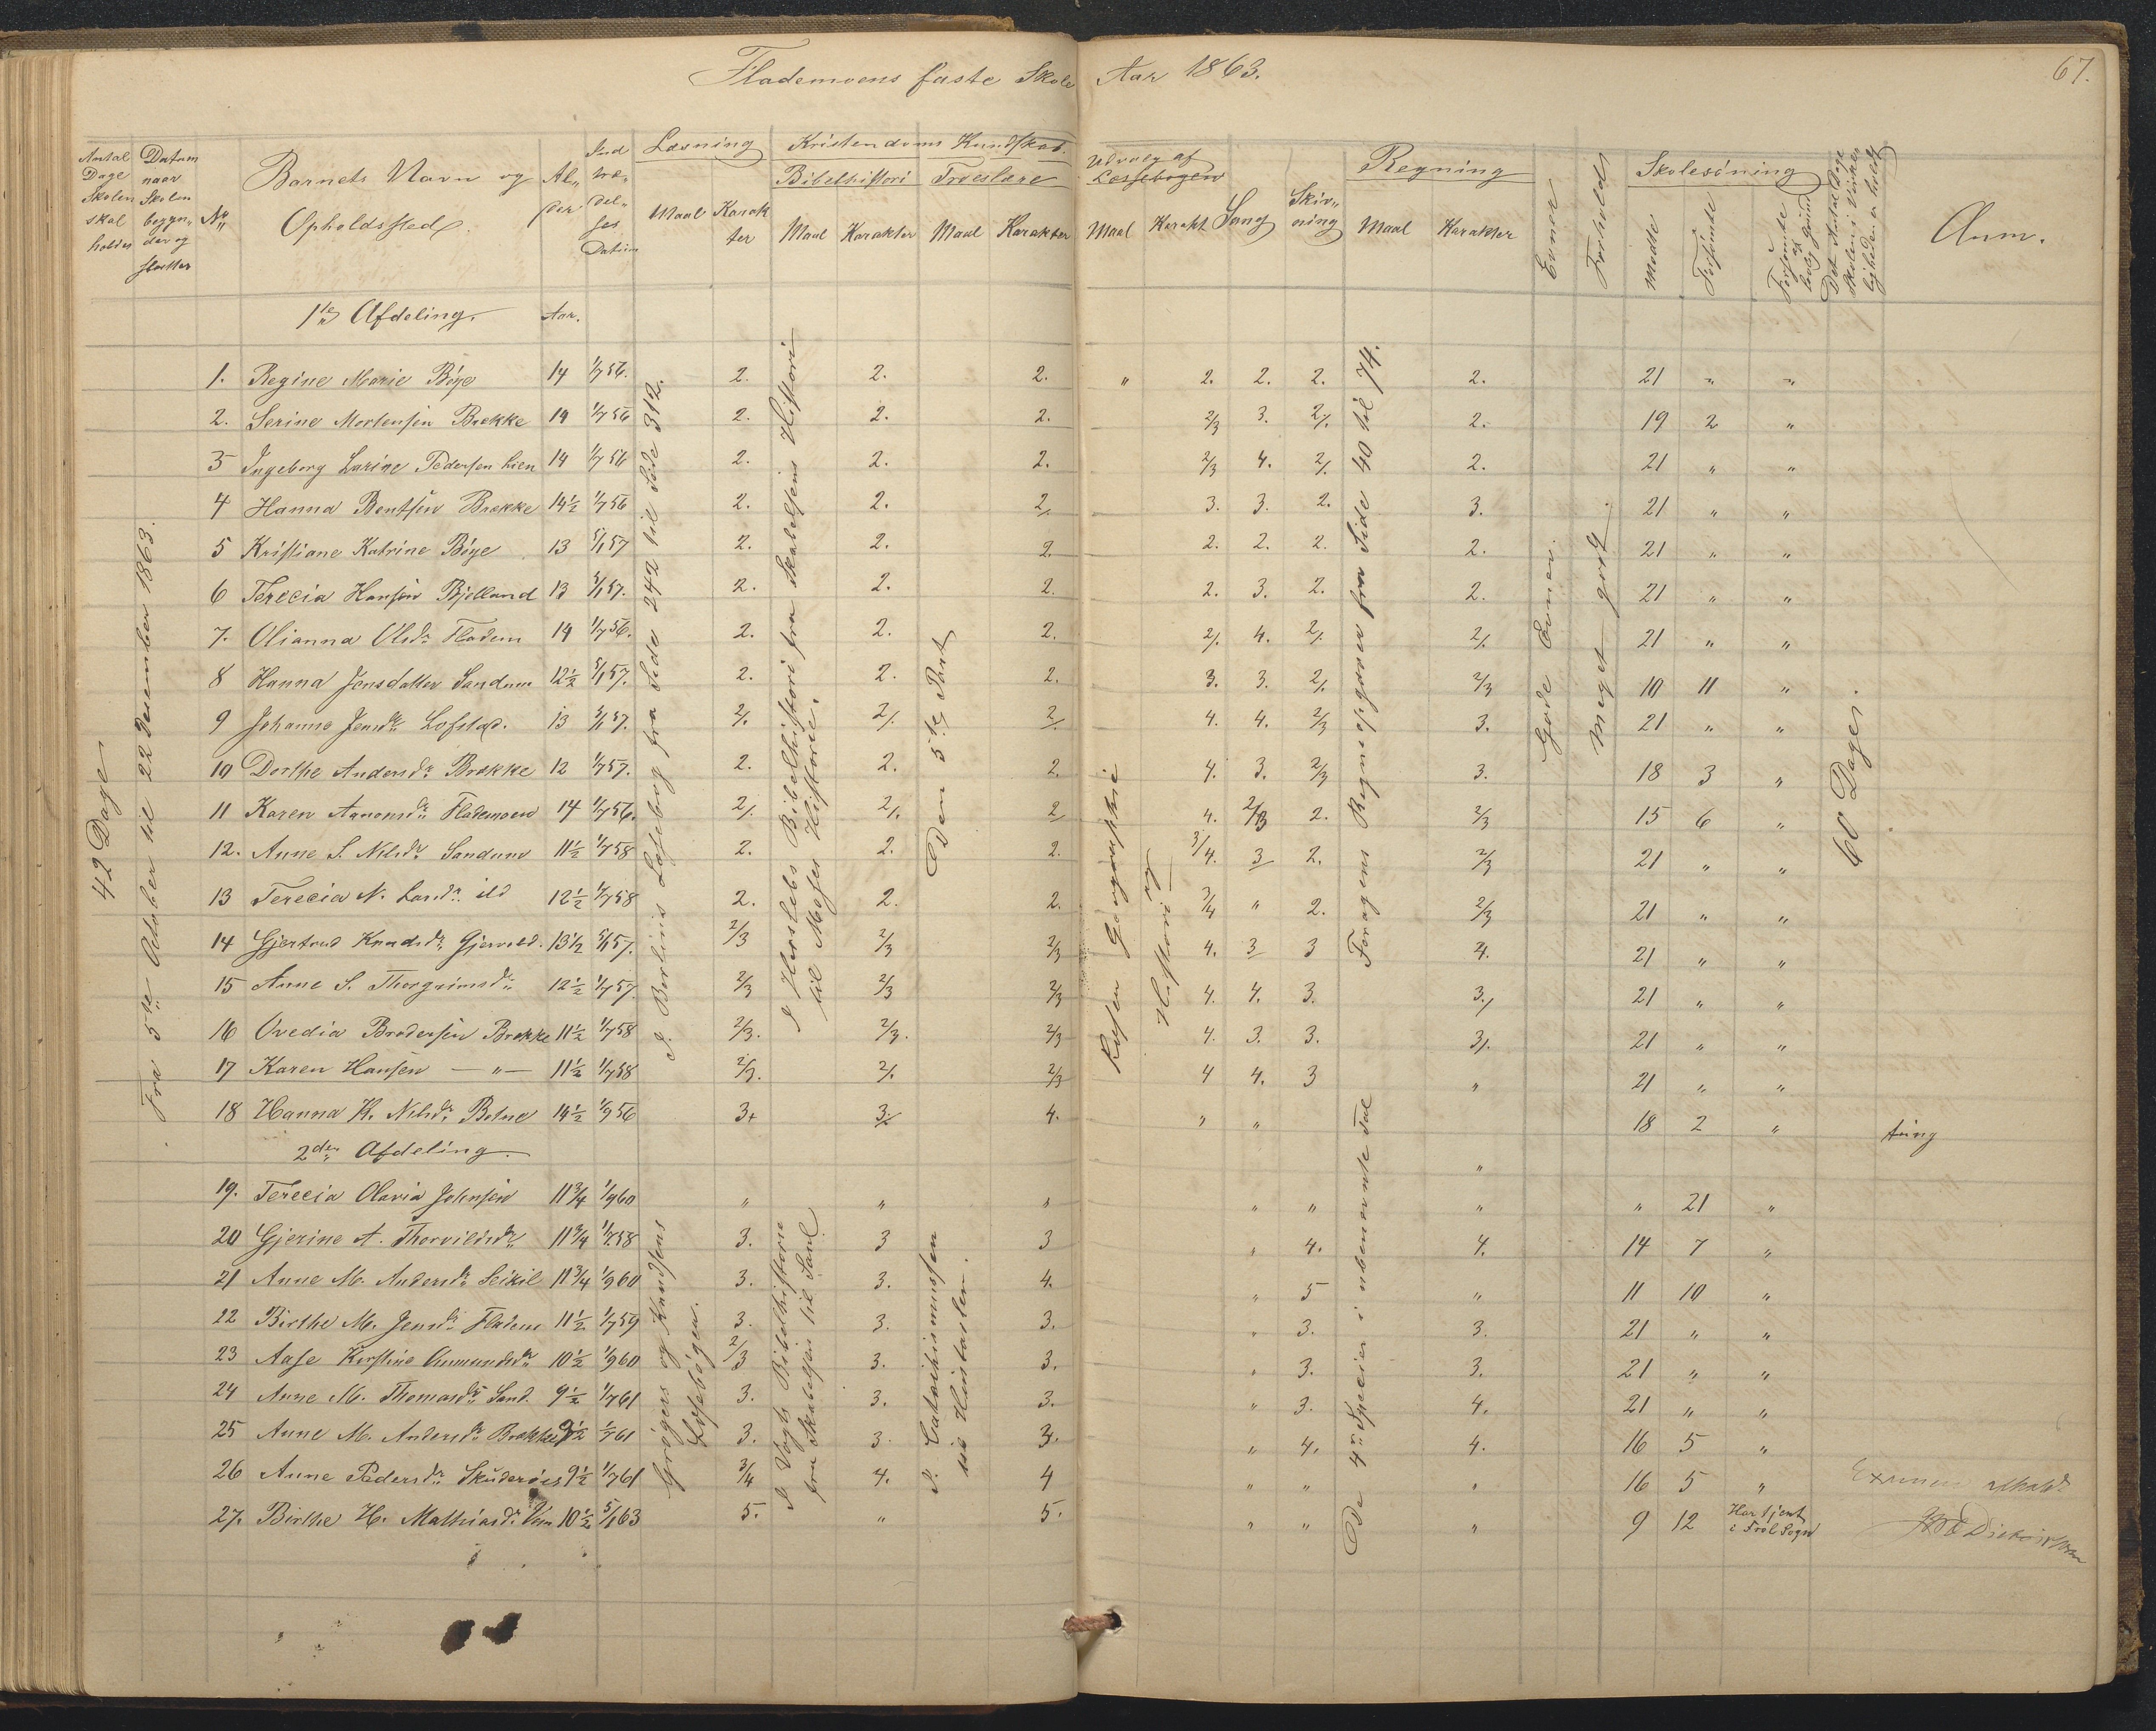 Flademoens faste Skole Aar 1863.
67.
Antal Dage Skolen skal holdes
Datum naar Skolen begyn- der og slutter
No
Barnets Navn og Opholdssted.
Al- der
Ind træ- del- ses Datum
Læsning
Maal Karak ter
Kristendoms Kundskab.
Bibelhistori Troeslære
Maal Karakter Maal Karakter
Udvalg af Læsebogen
Maal Karakt
Sang
Skriv- ning
Regning
Maal Karakter
Evner
Forhold
Skolesögning
Mødte
Forsömte
Forsömte af lovlig Grund
Det Antal Dage Skolen i Virke- ligheden er holdt
Anm.
1ste Afdeling. Aar.
42 Dage
Fra 5te October til 22 December 1863.
fra Side 242 til Side 312.
Bibelhistori fra Skabelsens Histori
til Moses Historie.
Den 5te Part
Geographie
og
Histori
Regneopgaver fra Side 40 til 74.
Gode Evner.
Meget godt
60 Dage.
1. Regine Marie Böye 14 1/7 56. 2. 2. 2. " 2. 2. 2. 2. 21 " "
2. Serine Mortensen Brekke 14 1/7 56 2. 2. 2. 2/3 3. 2/. 2. 19 2 "
3 Ingeborg Larine Pedersen Lien 14 1/7 56 2. 2. 2. 2/3 4. 2/. 2. 21 " "
4 Hanna Bentsen Brekke 14½ 1/7 56 2. 2. 2/. 3. 3. 2. 3. 21 " "
5 Kristiane Katrine Böye 13 5/1 57 2. 2. 2. 2. 2. 2. 2. 21 " "
6 Terecia Hansen Bjelland 13 5/1 57. 2. 2. 2. 2. 3. 2. 2. 21 " "
7. Olianna Olsdr Fladem 14 1/7 56. 2. 2. 2. 2/. 4. 2/. 2/. 21 " "
8 Hanna Jensdatter Sandum 12½ 5/1 57. 2. 2. 2. 3. 3. 2/. 2/3 10 11 "
9 Johanne Jensdr Lofstad. 13 5/1 57. 2/. 2/. 2/. 4. 4. 2/3 3. 21 " "
10 Dorthe Andersdr Brekke 12 1/7 57. 2. 2. 2. 4. 3. 2/3 3. 18 3 "
11 Karen Flademoen 14 1/7 56. 2/. 2/. 2/ 4. 2/3 2. 2/3 15 6 "
12. Anne S. Nilsdr Sandum 11½ 1/7 58 2. 2. 2. 3/4. 3 2. 2/3 21 " "
13 Terecia N. 12½ 1/7 58 2. 2. 2. 3/4 " 2. 2/3 21 " "
14 Gjertrud Knudsdr 13½ 5/1 57. 2/3 2/3 2/3 4. 3 3 4. 21 " "
15 Anne S. Thorgrimsdr 12½ 1/7 57. 2/3 2/3 2/3 4. 4. 3. 3./ 21 " "
16 Ovedia Brodersen Brekke 11½ 1/7 58 2/3. 2/3. 2/3 4. 3. 3. 3/. 21 " "
17 Karen Hansen — " — 11½ 1/7 58 2/3. 2/. 2/3 4 4. 3 " 21 " "
18 Hanna K. Nilsdr 14½ 1/9 56 3+ 3/. 4. " " 18 2 " tung
2den Afdeling.
"
og Knudsens
Læsebögen.
Vogts Bibelhistorie
fra Skabelsen til Saul
Catechismussen
De 4re Specier i ubenævnte Tal
19. Terecia Olavia Johnsen 11¾ 1/9 60 " " " " " " " 21 "
20 Gjerine A. Thorvildsdr 11¾ 1/7 58 3. 3 3 " 4. 4. 14 7 "
21 Anne M. Andersdr 11¾ 1/9 60 3. 3. 4. " 5 " 11 10 "
22 Birthe M. Jensdr Fladem 11½ 1/7 59 3. 3. 3. " 3. 3. 21 " "
23 Aase Kirstine 10½ 1/9 60 2/3 3. 3. " 3. 3. 21 " "
24 Anne M. Thomasdr Sand. 9½ 1/7 61 3. 3. 3. " 3. 4. 21 " "
25 Anne M. Andersdr Brekke 9½ 1/7 61 3. 3. 3. " 4. 4. 16 5 "
26 Anne Pedersdr 9½ 1/7 61 3/4 4. 4 " " " 16 5 "
27. Birthe H. Mathiasdr 10½ 5/1 63 5. " 5. " " " 9 12 Har tjent i Sogn
Examen afholdt